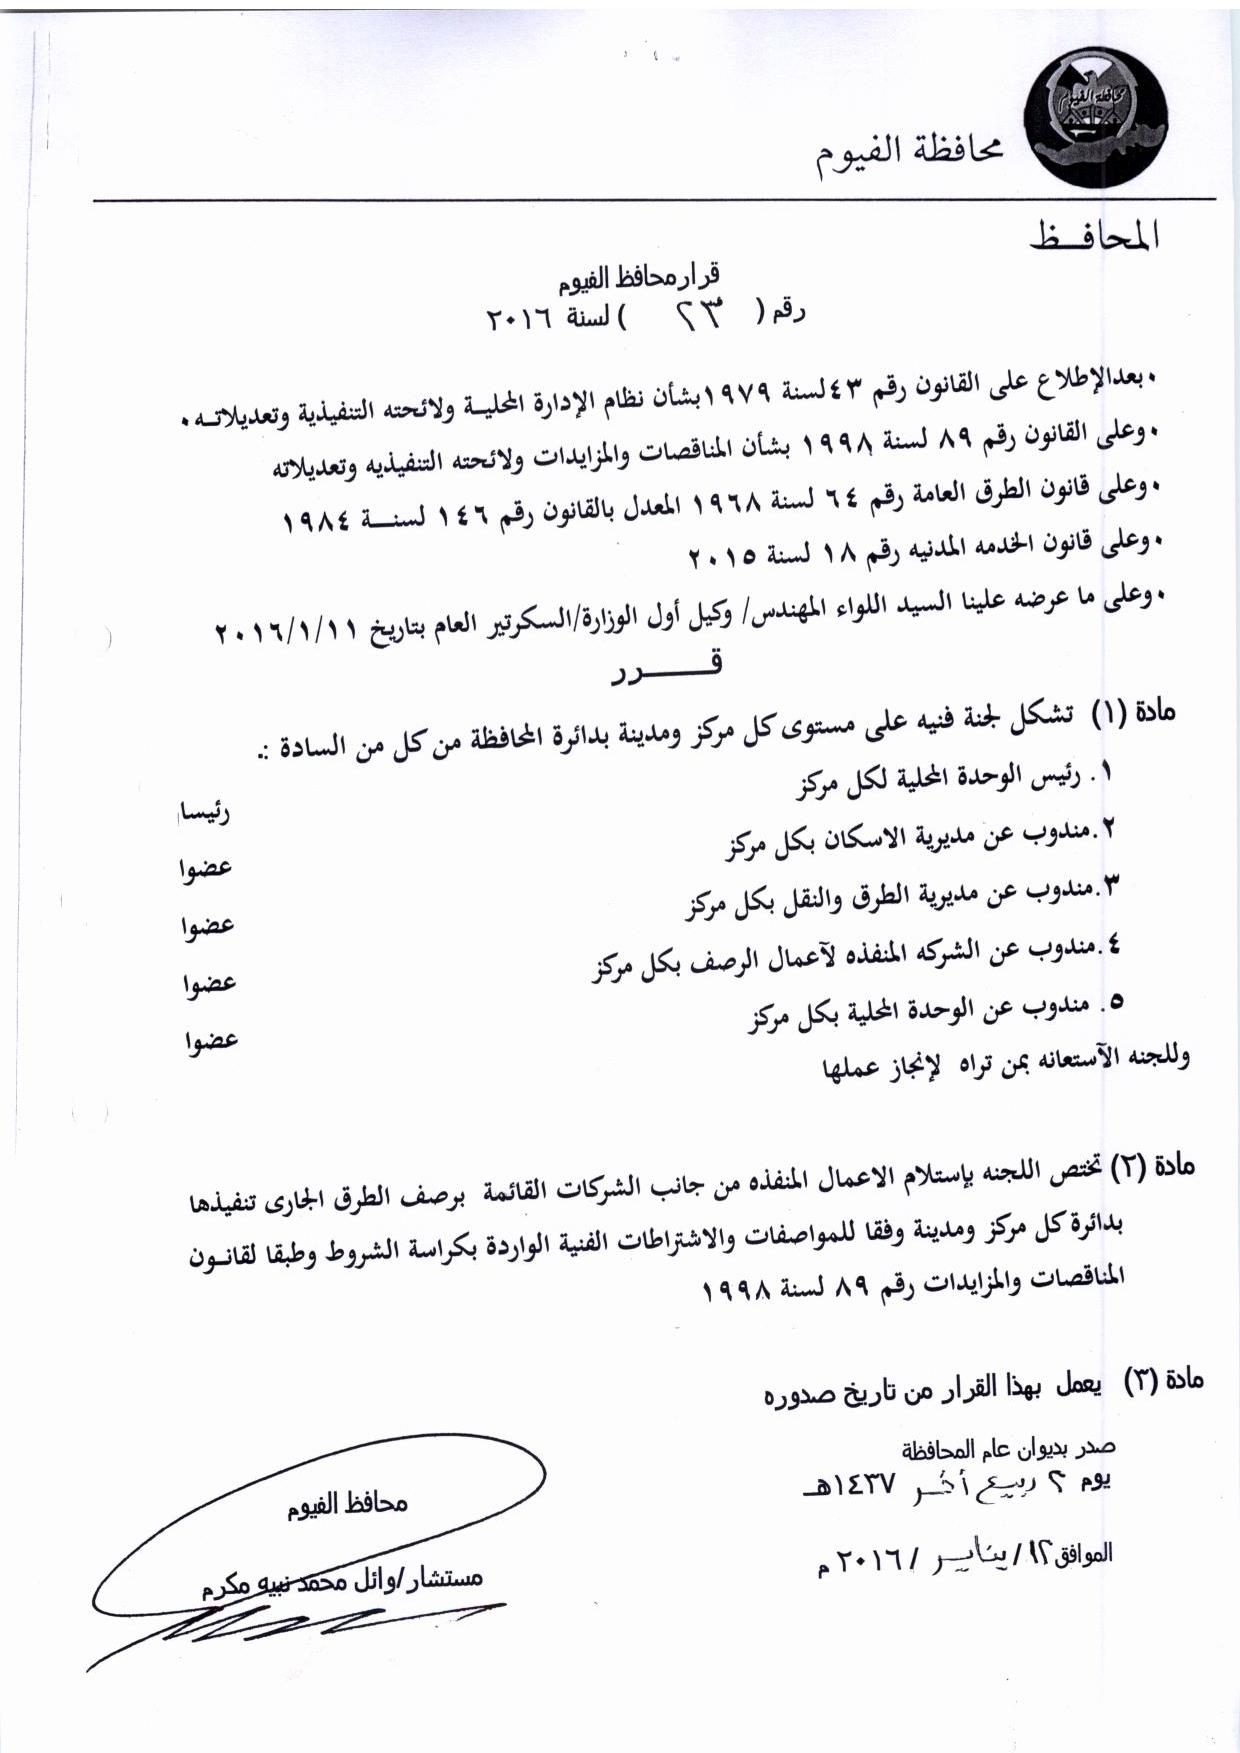 محافظة الفيوم
محافظة الفيوم
المحافــظ
قرار محافظ الفيوم
رقم ( ٢٣ ) لسنة ٢٠١٦
• بعدالإطلاع على القانون رقم ٤٣ لسنة ١٩٧٩ بشأن نظام الإدارة المحليـة ولائحته التنفيذية وتعديلاتـه •
• وعلى القانون رقم ٨٩ لسنة ١٩٩٨ بشأن المناقصات والمزايدات ولائحته التنفيذيه وتعديلاته
• وعلى قانون الطرق العامة رقم ٦٤ لسنة ١٩٦٨ المعدل بالقانون رقم ١٤٦ لسنــة ١٩٨٤
• وعلى قانون الخدمه المدنيه رقم ١٨ لسنة ٢٠١٥
• وعلى ما عرضه علينا السيد اللواء المهندس/ وكيل أول الوزارة/السكرتير العام بتاريخ ٢٠١٦/١/١١
قـــــرر
مادة (١) تشكل لجنة فنيه على مستوى كل مركز ومدينة بدائرة المحافظة من كل من السادة :.
١. رئيس الوحدة المحلية لكل مركز رئيسا
٢.مندوب عن مديرية الاسكان بكل مركز عضوا
٣.مندوب عن مديرية الطرق والنقل بكل مركز عضوا
٤.مندوب عن الشركه المنفذه لآعمال الرصف بكل مركز عضوا
٥. مندوب عن الوحدة المحلية بكل مركز عضوا
وللجنه الآستعانه بمن تراه لإنجاز عملها
مادة (٢) تختص اللجنه بإستلام الاعمال المنفذه من جانب الشركات القائمة برصف الطرق الجارى تنفيذها
بدائرة كل مركز ومدينة وفقا للمواصفات والاشتراطات الفنية الواردة بكراسة الشروط وطبقا لقانـون
المناقصات والمزايدات رقم ٨٩ لسنة ١٩٩٨
مادة (٣) يعمل بهذا القرار من تاريخ صدوره
صدر بديوان عام المحافظة
يوم ٢ ربيع أخر ١٤٣٧هـ
الموافق ١٢/ يناير / ٢٠١٦ م
محافظ الفيوم
مستشار/وائل محمد نبيه مكرم